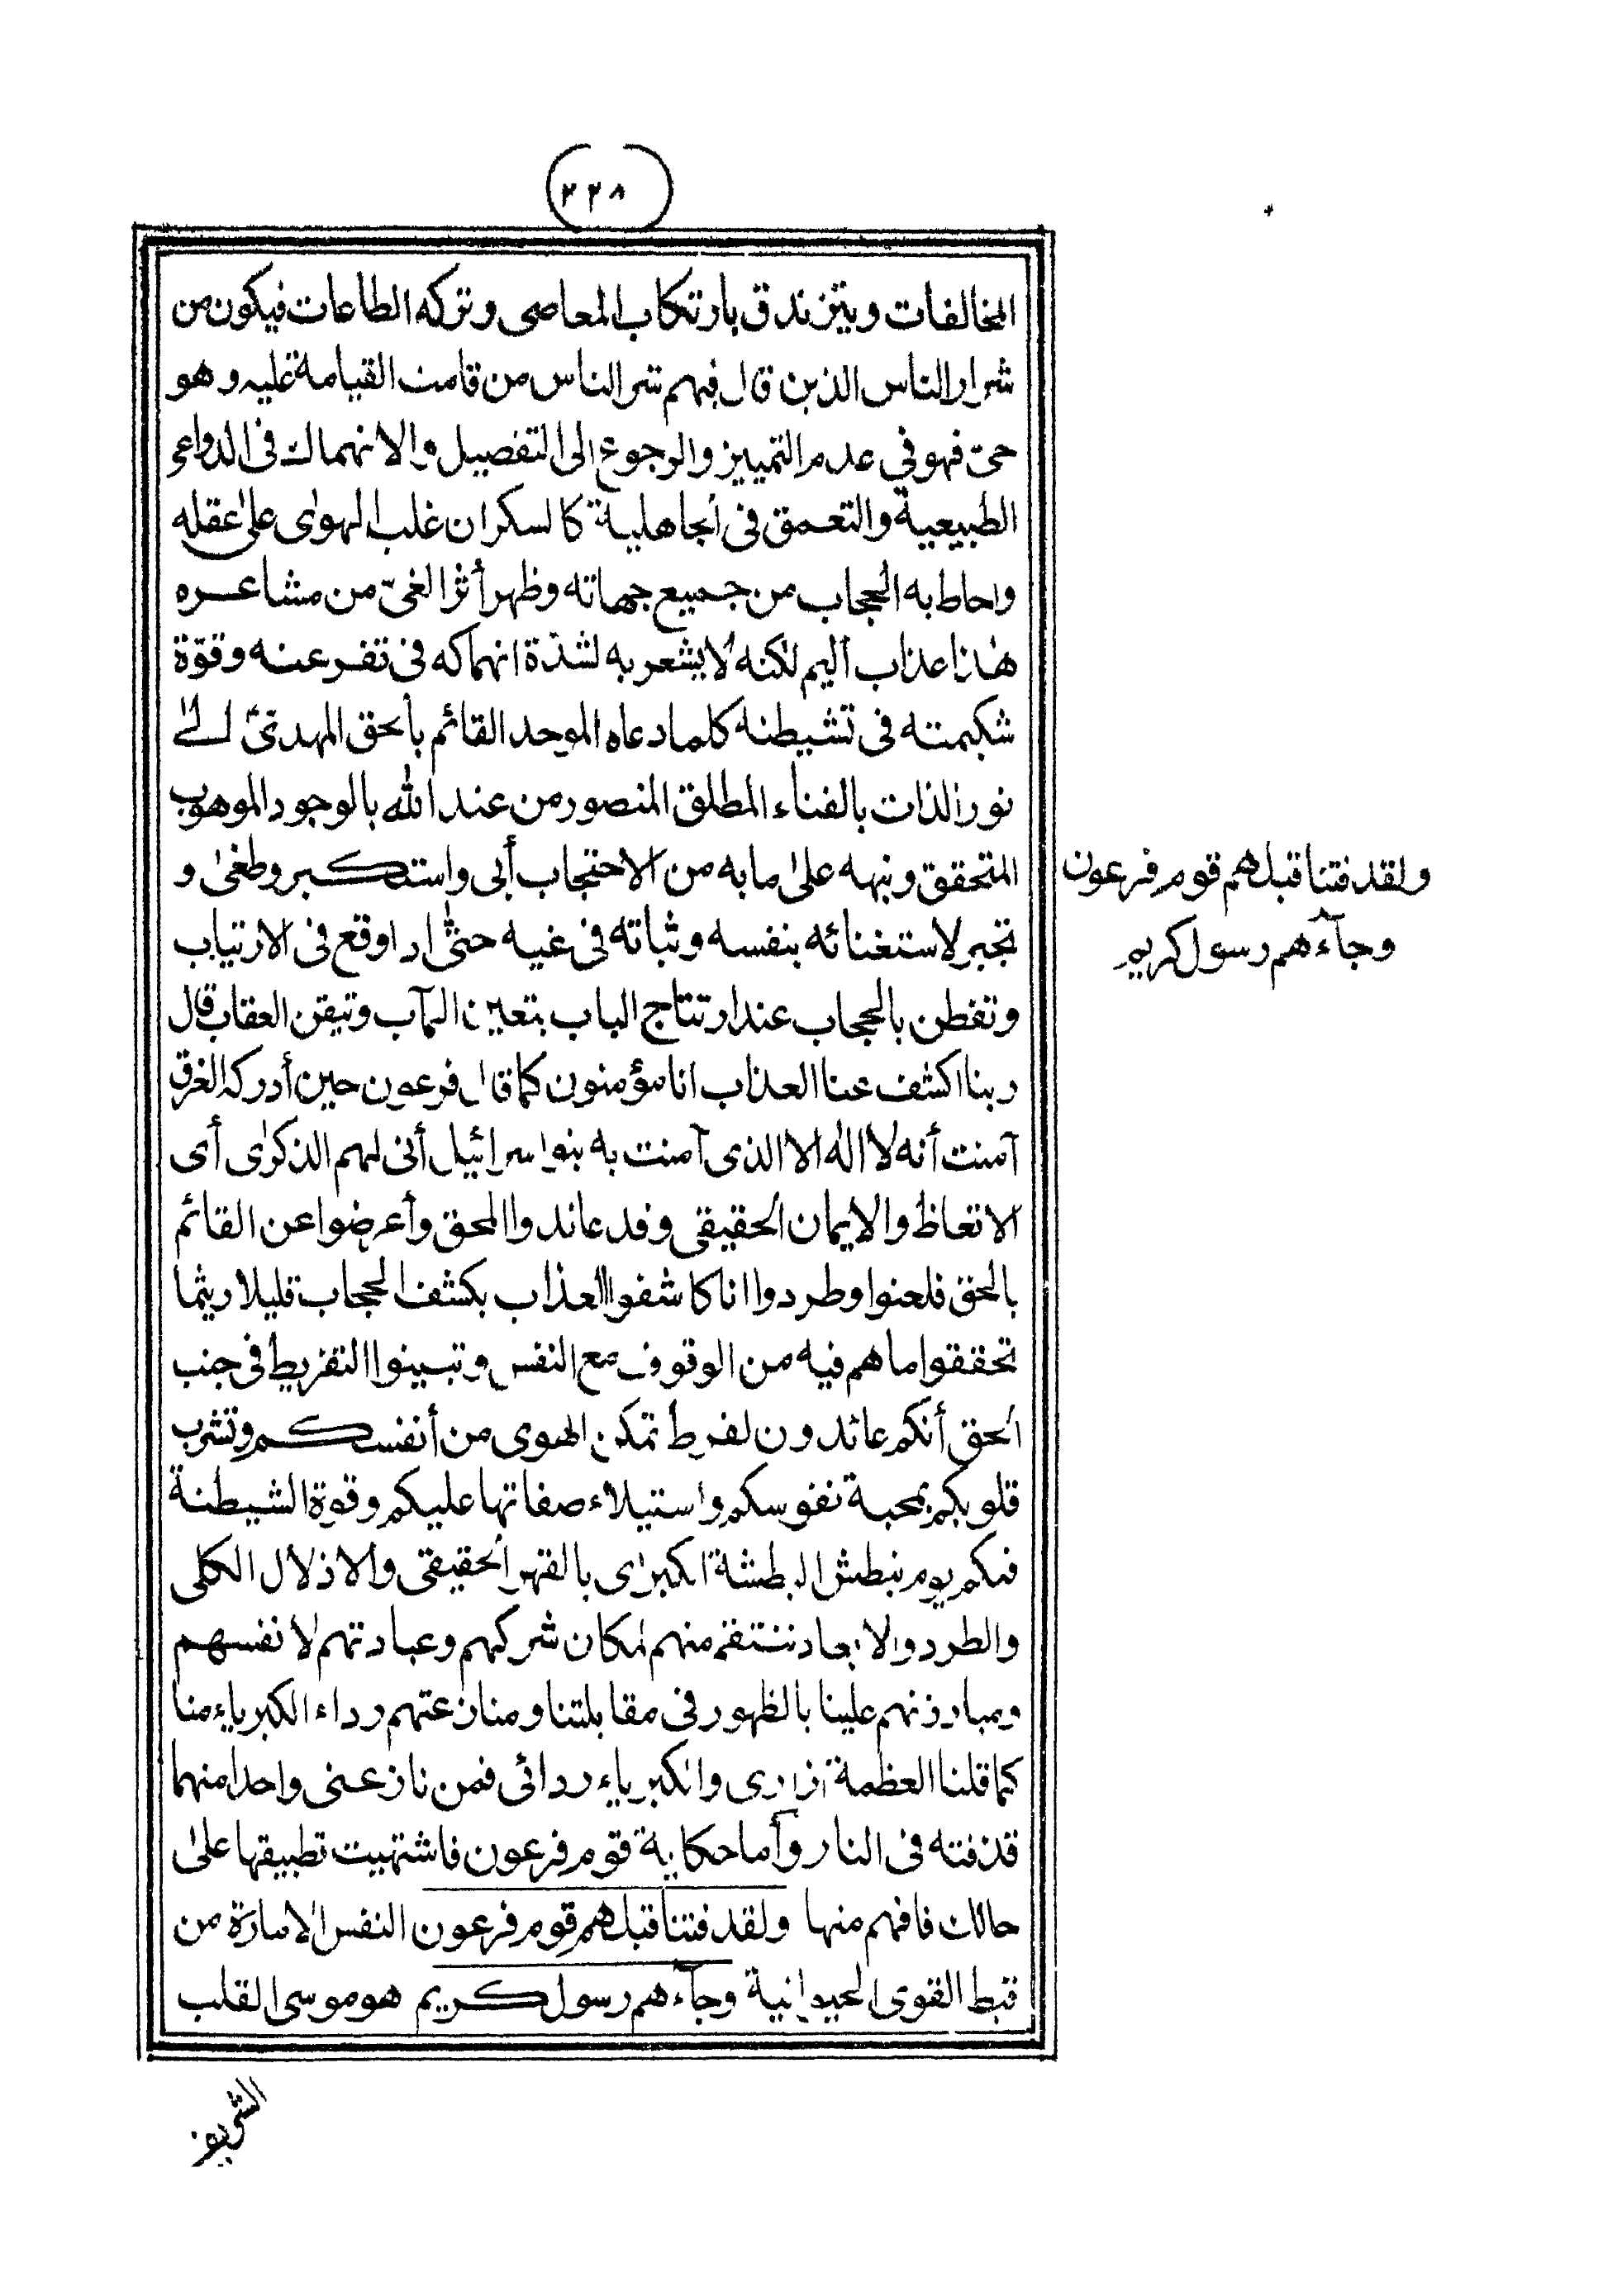 ٢٢٨
المخالفات ويتزندق بارتكاب المعاصى وتركه الطاعات فيكون من
شرار الناس الذين قال فيهم شر الناس من قامت القيامة عليه وهو
حىّ فهو في عدم التمييز والرجوع الى التفصيل والانهماك فى الدواعى
الطبيعية والتعمق فى الجاهلية كالسكران غلب الهوٰى علىٰ عقله
واحاط به الحجاب من جميع جهاته وظهر أثر الغىّ من مشاعره
هٰذا عذاب أليم لٰكنه لا يشعر به لشدّة انهماكه فى تفرعنه وقوّة
شكيمته فى تشيطنه كلما دعاه الموحد القائم بالحق المهدىّ الىٰ
نور الذات بالفناء المطلق المنصور من عند الله بالوجود الموهوب
المتحقق ونبهه علىٰ ما به من الاحتجاب أبى واستكبر وطغىٰ و
تجبر لاستغنائه بنفسه وثباته فى غيه حتّٰى اذا وقع فى الارتياب
وتفطن بالحجاب عند ارتتاج الباب بتعين المآب وتيقن العقاب قال
ربنا اكشف عنا العذاب انا مؤمنون كما قال فرعون حين أدركه الغرق
آمنت أنه لا اله الا الذى آمنت به بنوا سرائيل أنى لهم الذكرٰى أى
الاتعاظ والايمان الحقيقى وقد عاندوا الحق وأعرضوا عن القائم
بالحق فلعنوا وطردوا انا كاشفوا العذاب بكشف الحجاب قليلا ريثما
تحققوا ما هم فيه من الوقوف مع النفس وتبينوا التفريط فى جنب
الحق أنكم عائدون لفرط تمكن الهوى من أنفسكم وتشرب
قلوبكم بمحبة نفوسكم واستيلاء صفاتها عليكم وقوة الشيطنة
فيكم يوم نبطش البطشة الكبرٰى بالقهر الحقيقى والاذلال الكلى
والطرد والابعاد ننتقم منهم لمكان شركهم وعبادتهم لانفسهم
ومبارزتهم علينا بالظهور فى مقابلتنا ومنازعتهم رداء الكبرياء منا
كما قلنا العظمة ازارى والكبرياء ردائى فمن نازعنى واحدا منهما
قذفته فى النار وأما حكاية قوم فرعون فاشتهيت تطبيقها علىٰ
حالك فافهم منها ولقد فتنا قبلهم قوم فرعون النفس الامارة من
قبط القوى الحيوانية وجآءهم رسول كريم هو موسى القلب
ولقد فتنا قبلهم قوم فرعون
وجآءهم رسول كريم